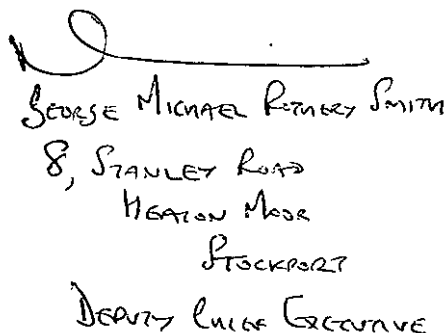 GEORGE MICHAEL ROTHERY SMITH
8, STANLEY ROAD
HEATON MOOR
STOCKPORT
DEPUTY CHIEF EXECUTIVE